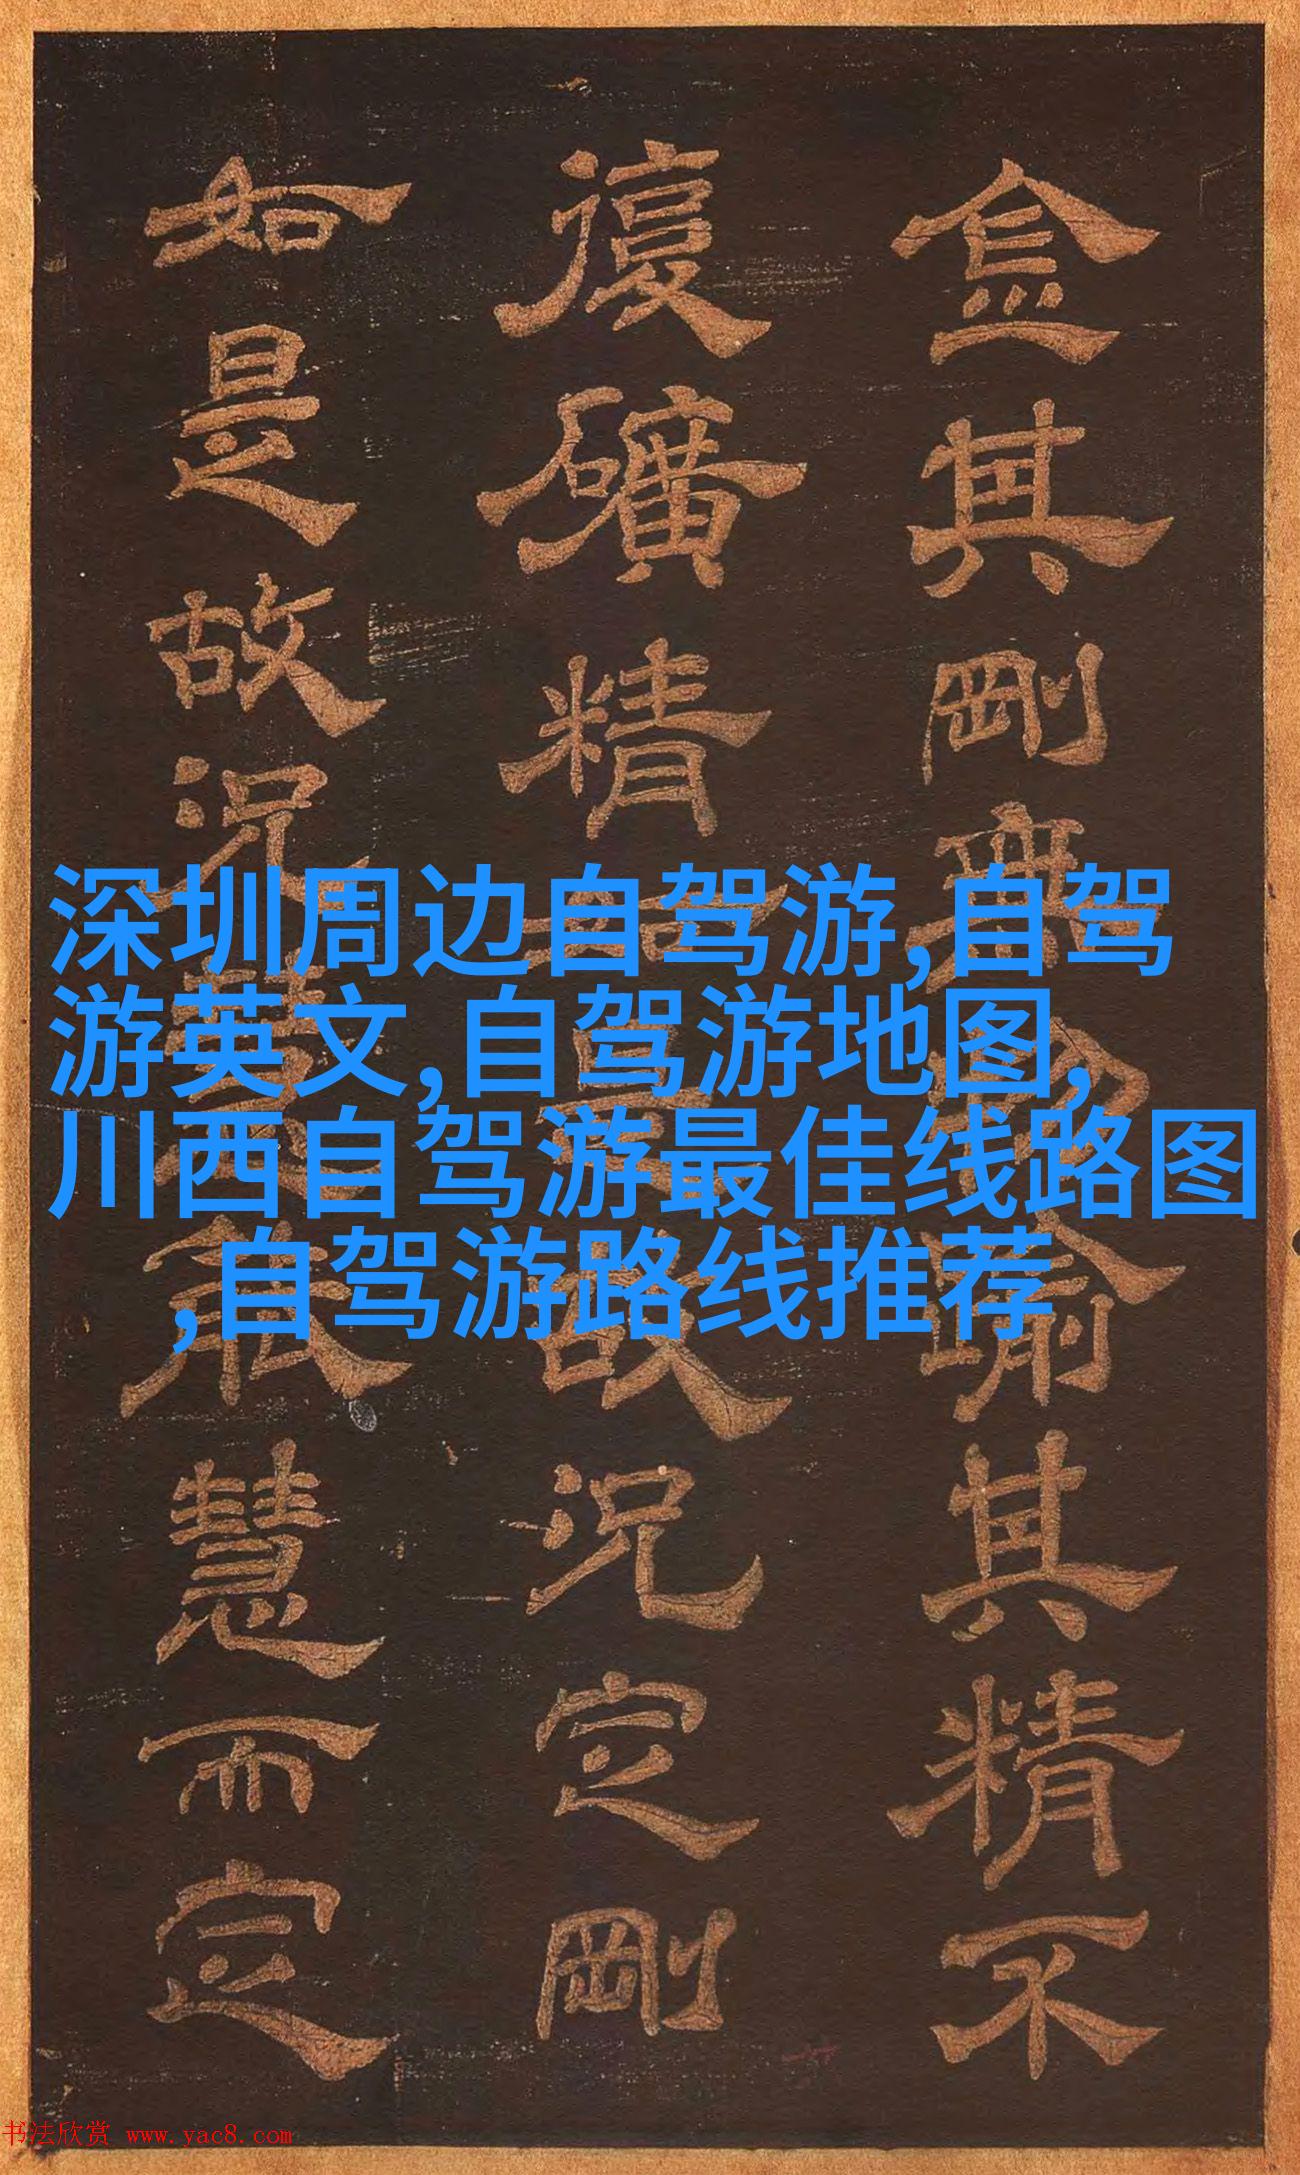 金其剛無踰其精不
復礦精故況定剛
如是故況能慧而定
深圳周边自驾游,自驾
游英文,自驾游地图,
川西自驾游最佳线路图
,自驾游路线推荐
书法欣赏 www.yac8.com